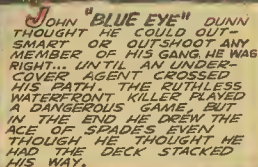 JOHN "BLUE EYE" DUNN
THOUGHT HE COULD OUT-
SMART OR OUTSHOOT ANY
MEMBER OF HIS GANG. HE WAS
RIGHT... UNTIL AN UNDER-
COVER AGENT CROSSED
HIS PATH. THE RUTHLESS
WATERFRONT KILLER PLAYED
A DANGEROUS GAME, BUT
IN THE END HE DREW THE
ACE OF SPADES EVEN
THOUGH HE THOUGHT HE
HAD THE DECK STACKED
HIS WAY.